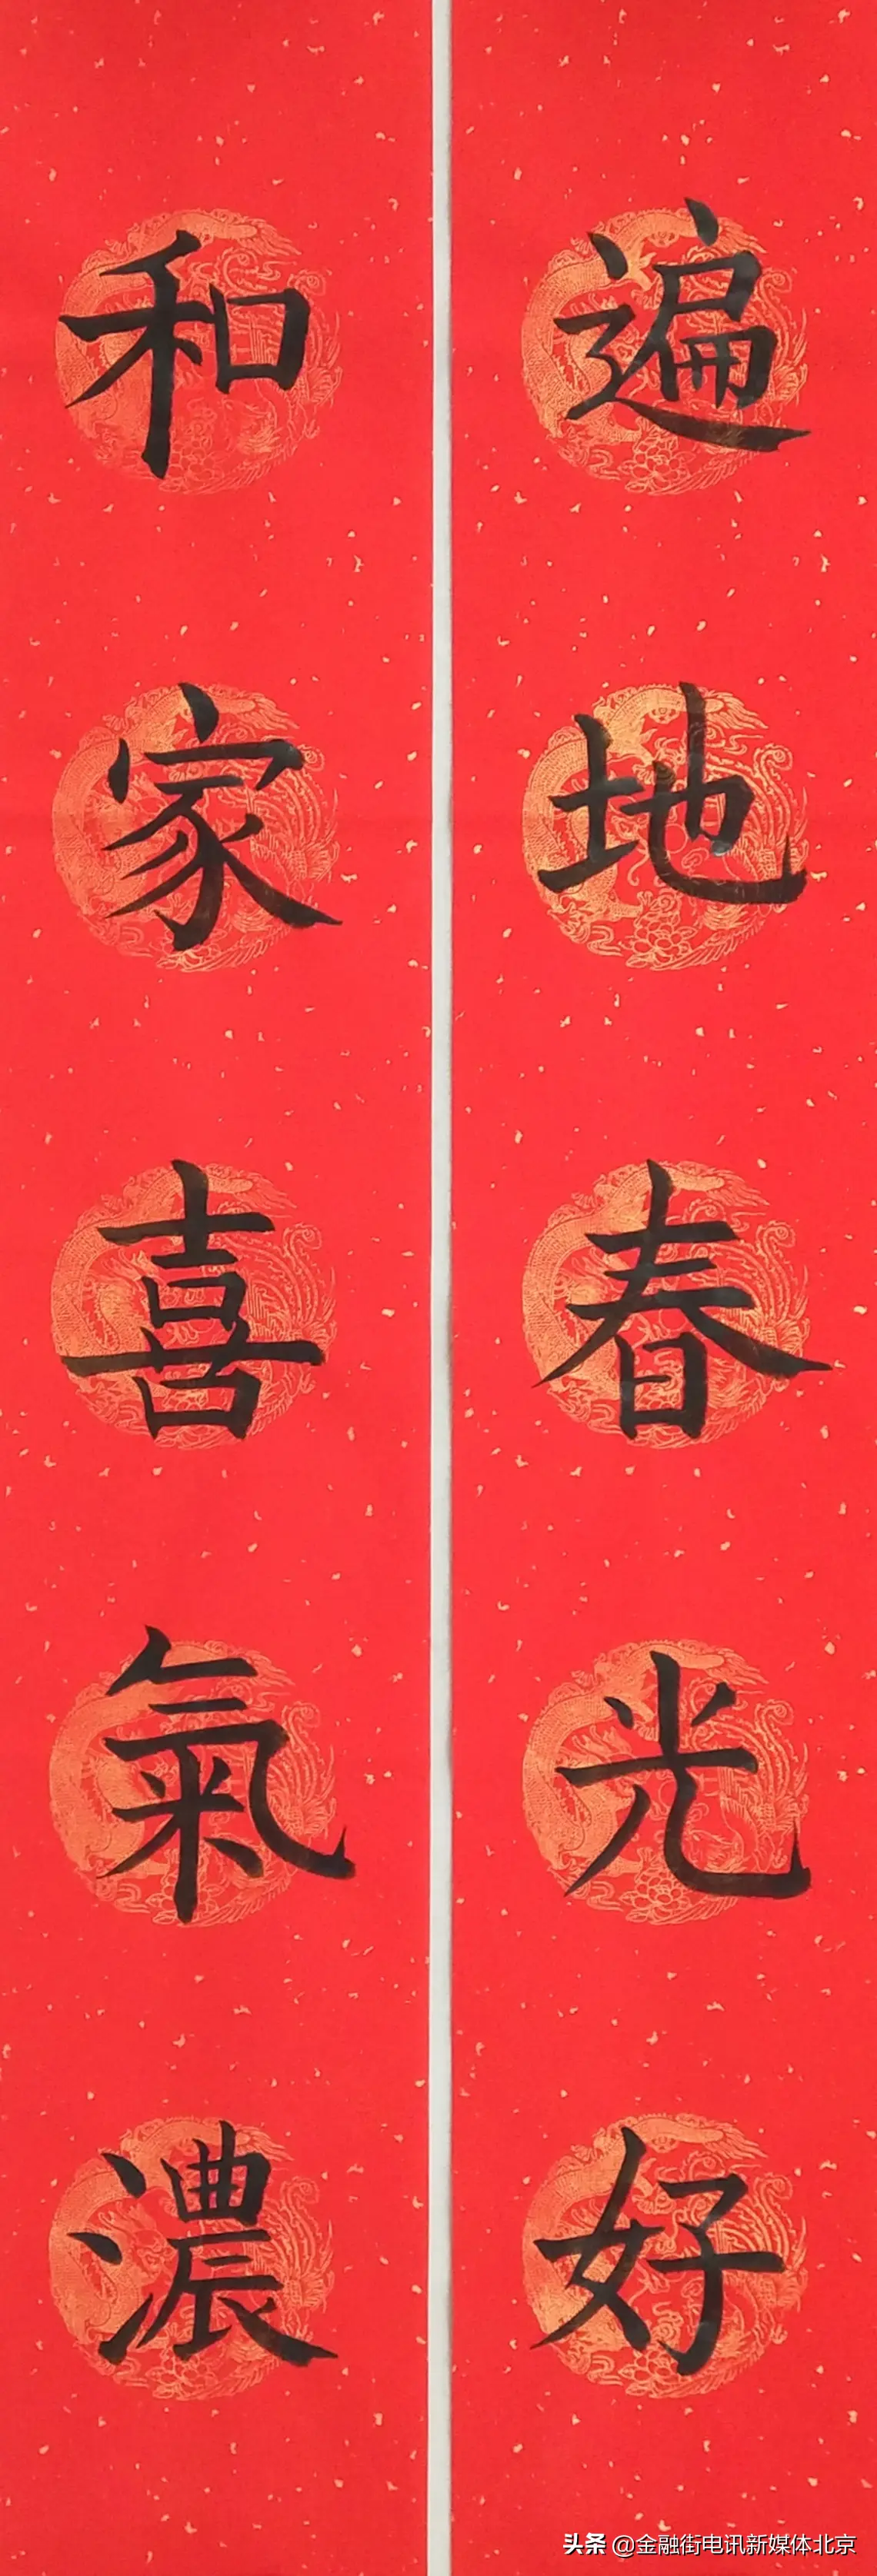 遍地春光好
和家喜氣濃
头条 @金融街电讯新媒体北京